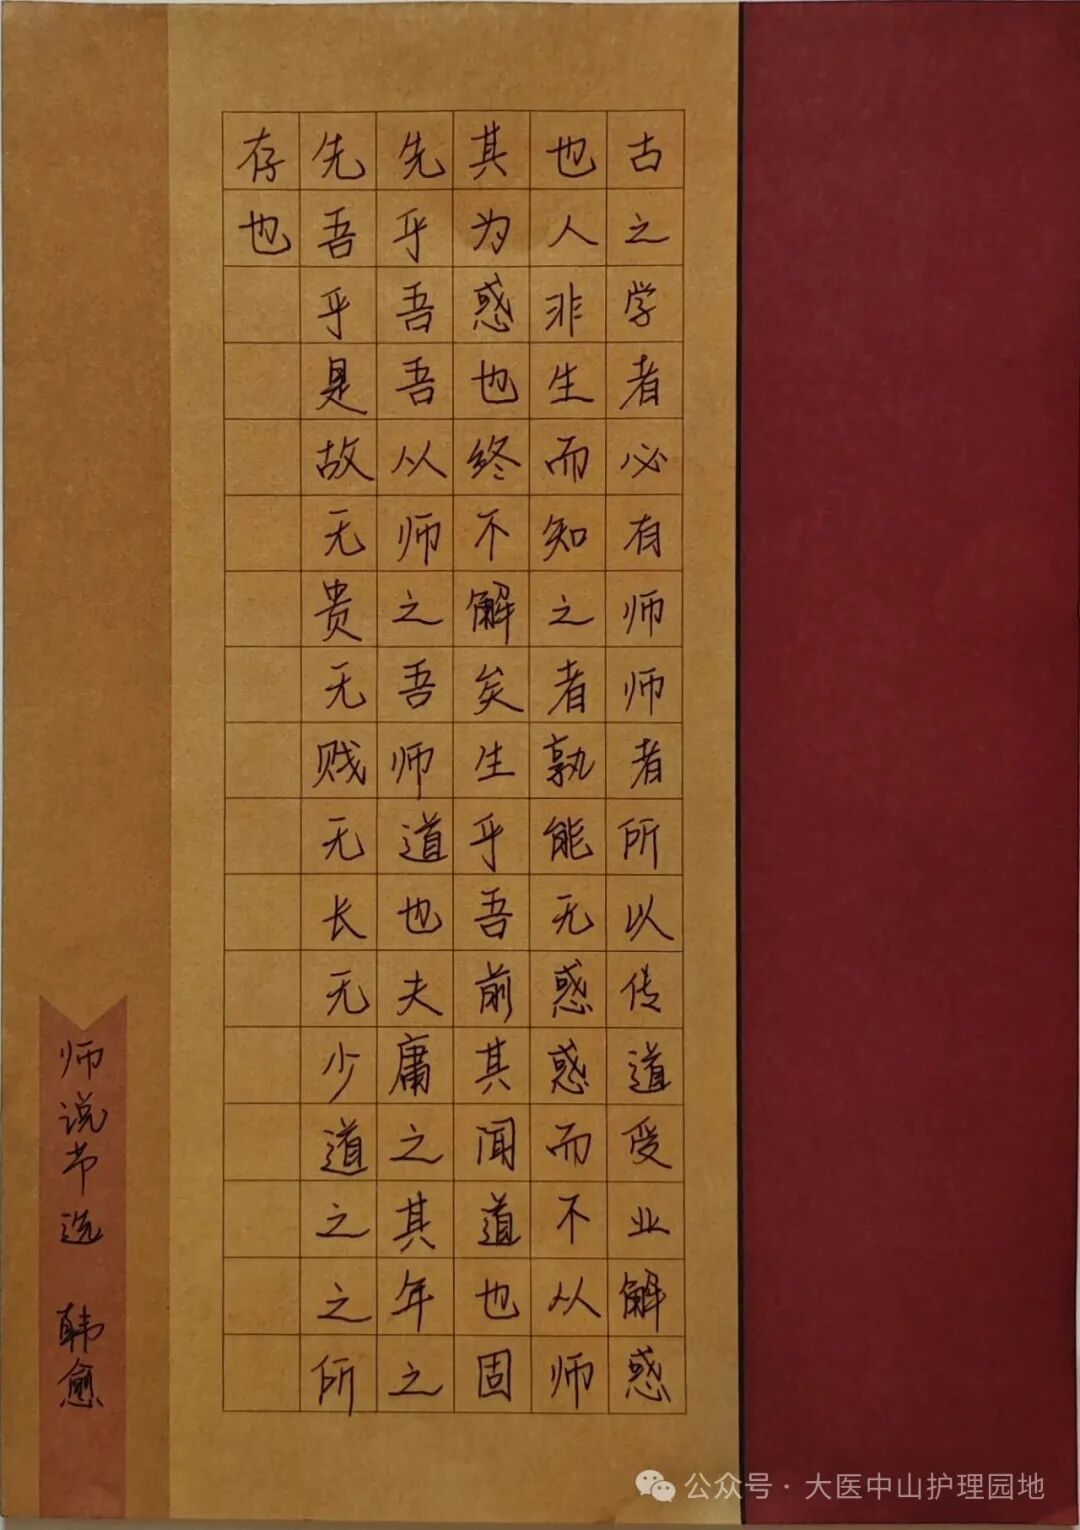 古之学者必有师师者所以传道受业解惑
也人非生而知之者孰能无惑惑而不从师
其为惑也终不解矣生乎吾前其闻道也固
先乎吾吾从师之吾师道也夫庸之其年之
先吾乎是故无贵无贱无长无少道之之所
存也
师说节选 韩愈
公众号·大医中山护理园地